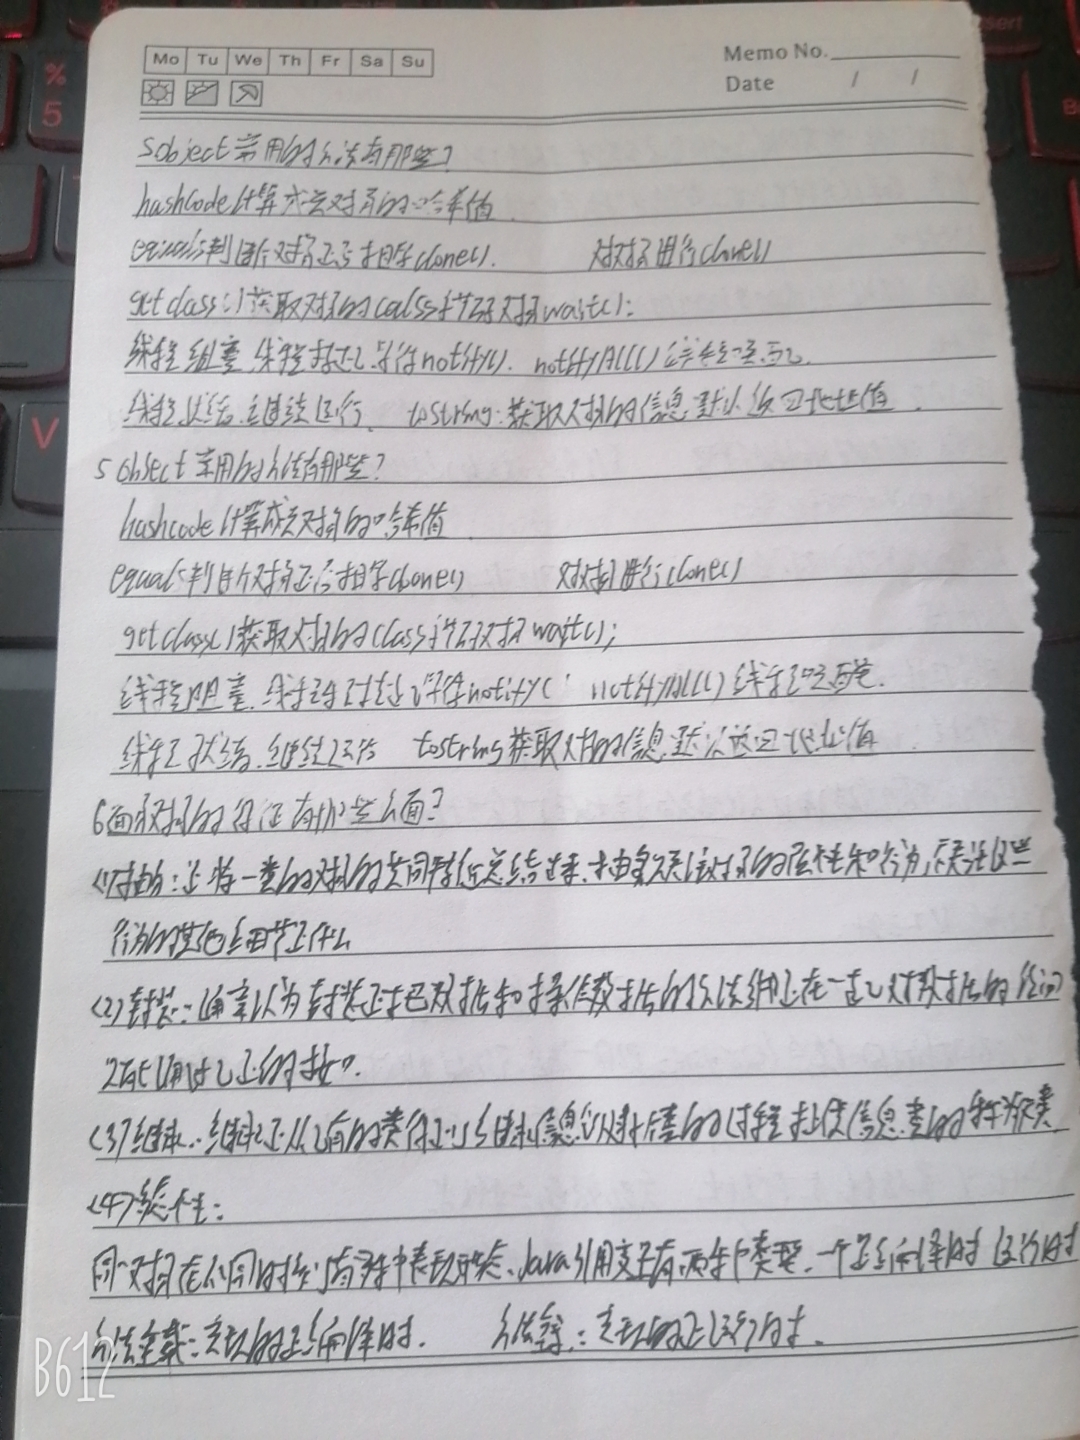 Mo Tu We Th Fr Sa Su
Memo No.
Date / /
5object常用的方法有那些?
hashCode计算成员对象的哈希值
equals判断对象是否相等clone(). 对对象进行clone()
getclass()获取对象的calss字节码对象wait():
线程阻塞,线程 等待notify(). notifyAll()
线程 继续运行 tostring:获取对象的信息,默认返回地址值.
5 object常用的方法有那些?
hashcode计算成员对象的哈希值
equals判断对象是否相等clone() 对对象进行clone()
getclass()获取对象的class字节码对象wait();
线程阻塞,线程 等待notify( notifyAll()线程唤醒.
线程 继续运行 tostring获取对象的信息,默认返回地址值
6面向对象的特征有那些方面?
(1)抽象:是将一类的对象的共同特征总结 来, 对象的属性和行为,不关注这些
行为的其他细节是什么
(2)封装:通常认为封装是把数据和操作数据的方法绑定在一起,对数据的访问
只能通过 的接口.
(3)继承:继承是从已有的类得 继承信息 类的过程提供信息类的称为父类
(4)多态性:
同一对象在不同时 有多种表现形态、Java引用变量有两种类型,一个是编译时 运行时
方法重载:实现的是编译时. 方法重写:实现的是运行时.
B612